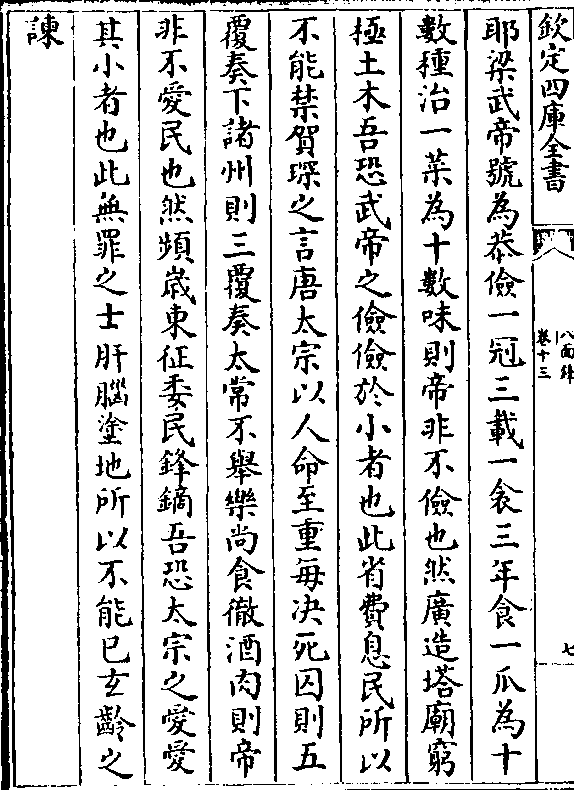 欽定四庫全書
八面鋒
卷十三
七
耶梁武帝號為恭儉一冠三載一衾三年食一瓜為十
數種治一菜為十數味則帝非不儉也然廣造塔廟窮
極土木吾恐武帝之儉儉於小者也此省費息民所以
不能禁賀琛之言唐太宗以人命至重每决死囚則五
覆奏下諸州則三覆奏太常不舉樂尚食徹酒肉則帝
非不愛民也然頻嵗東征委民鋒鏑吾恐太宗之愛愛
其小者也此無罪之士肝腦塗地所以不能已玄齡之
諫